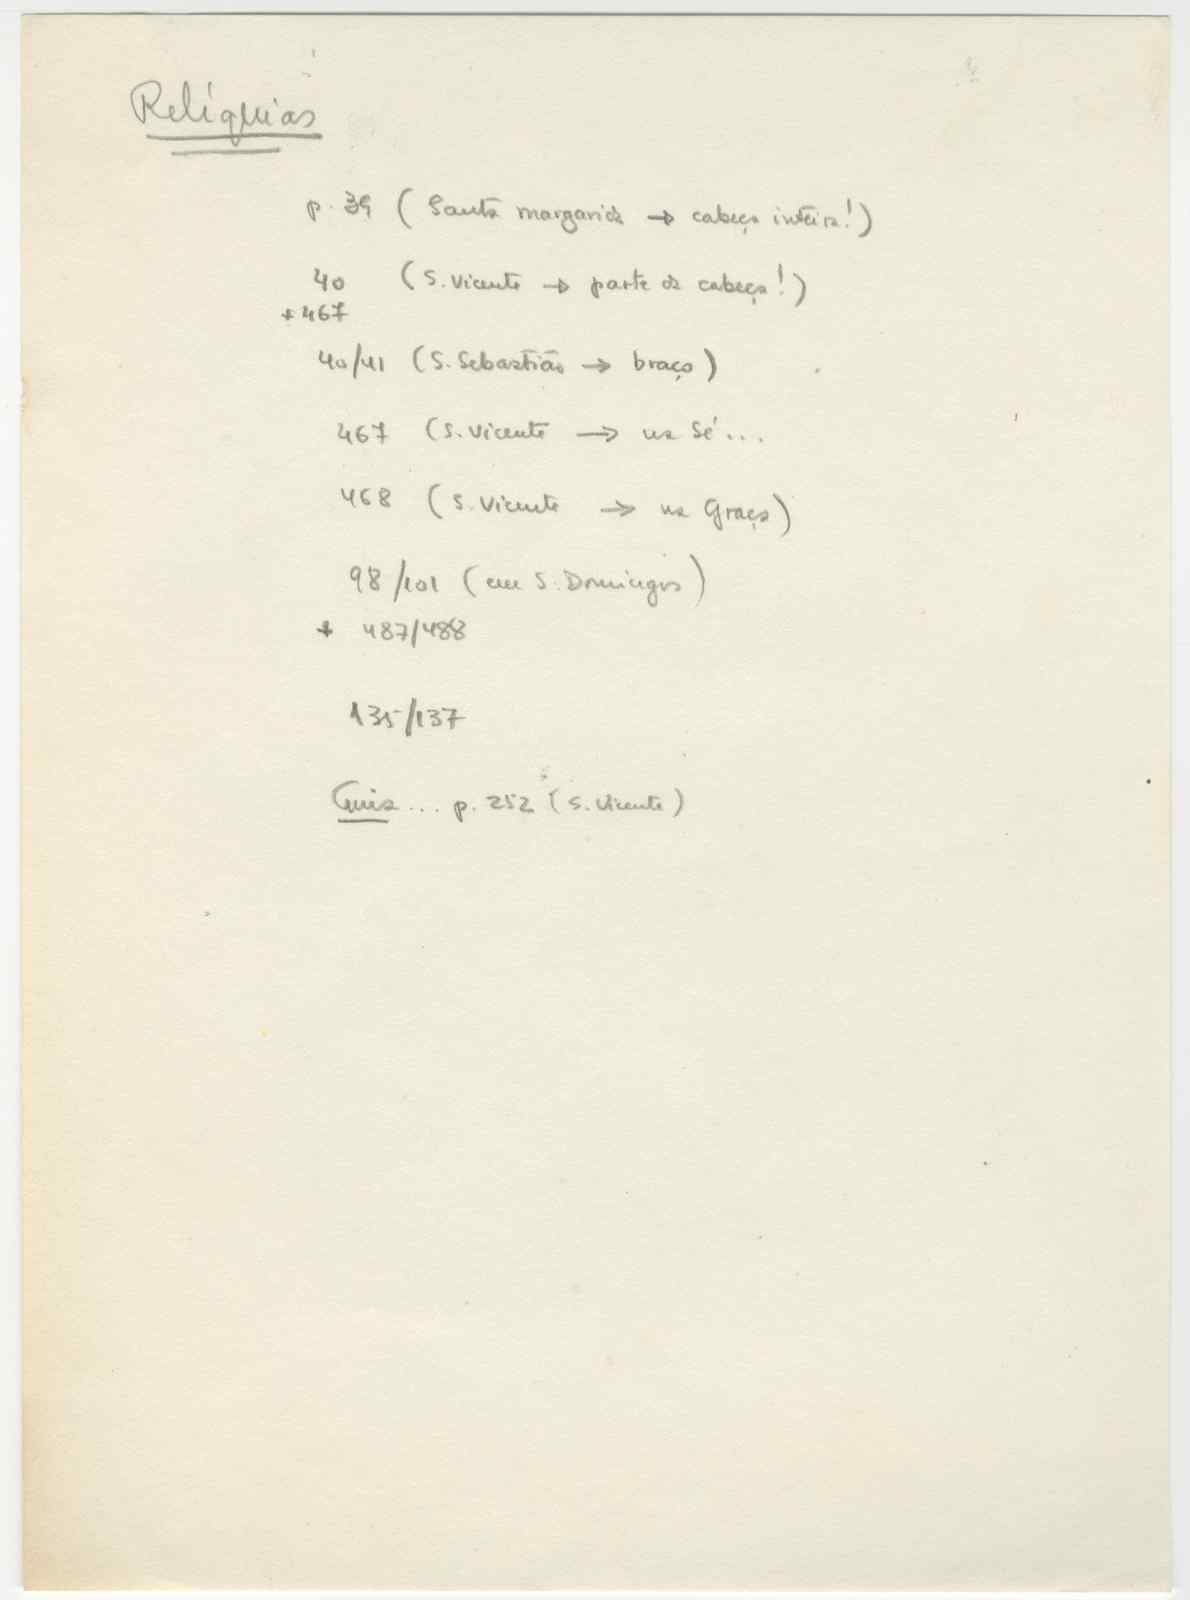 Relíquias
p. 39 (Santa margarida → cabeça inteira!)
40 (S. Vicente → parte da cabeça!)
+ 467
40/41 (S. Sebastião → braço)
467 (S. Vicente → na Sé...
468 (S. Vicente → na Graça)
98/101 (em S. Domingos)
+ 487/488
135/137
Guia... p. 252 (S. Vicente)